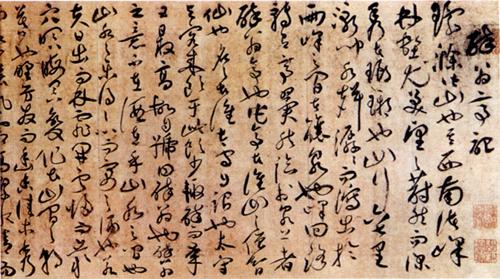 醉翁亭記
環滁皆山也其西南諸峰
林壑尤美望之蔚然而深
秀者琅琊也山行六七里
漸聞水聲潺潺而瀉出於
兩峰之間者釀泉也峰回路
轉有亭翼然臨於泉上者
醉翁亭也作亭者誰山之僧智
仙也名之者誰太守自謂也太守
與客來飲於此飲少輒醉而年
又最高故自號曰醉翁也醉翁
之意不在酒在乎山水之間也
山水之樂得之心而寓之酒也若
夫日出而林霏開雲歸而巖
穴暝晦明變化者山間之朝
暮也野芳發而幽香佳木秀